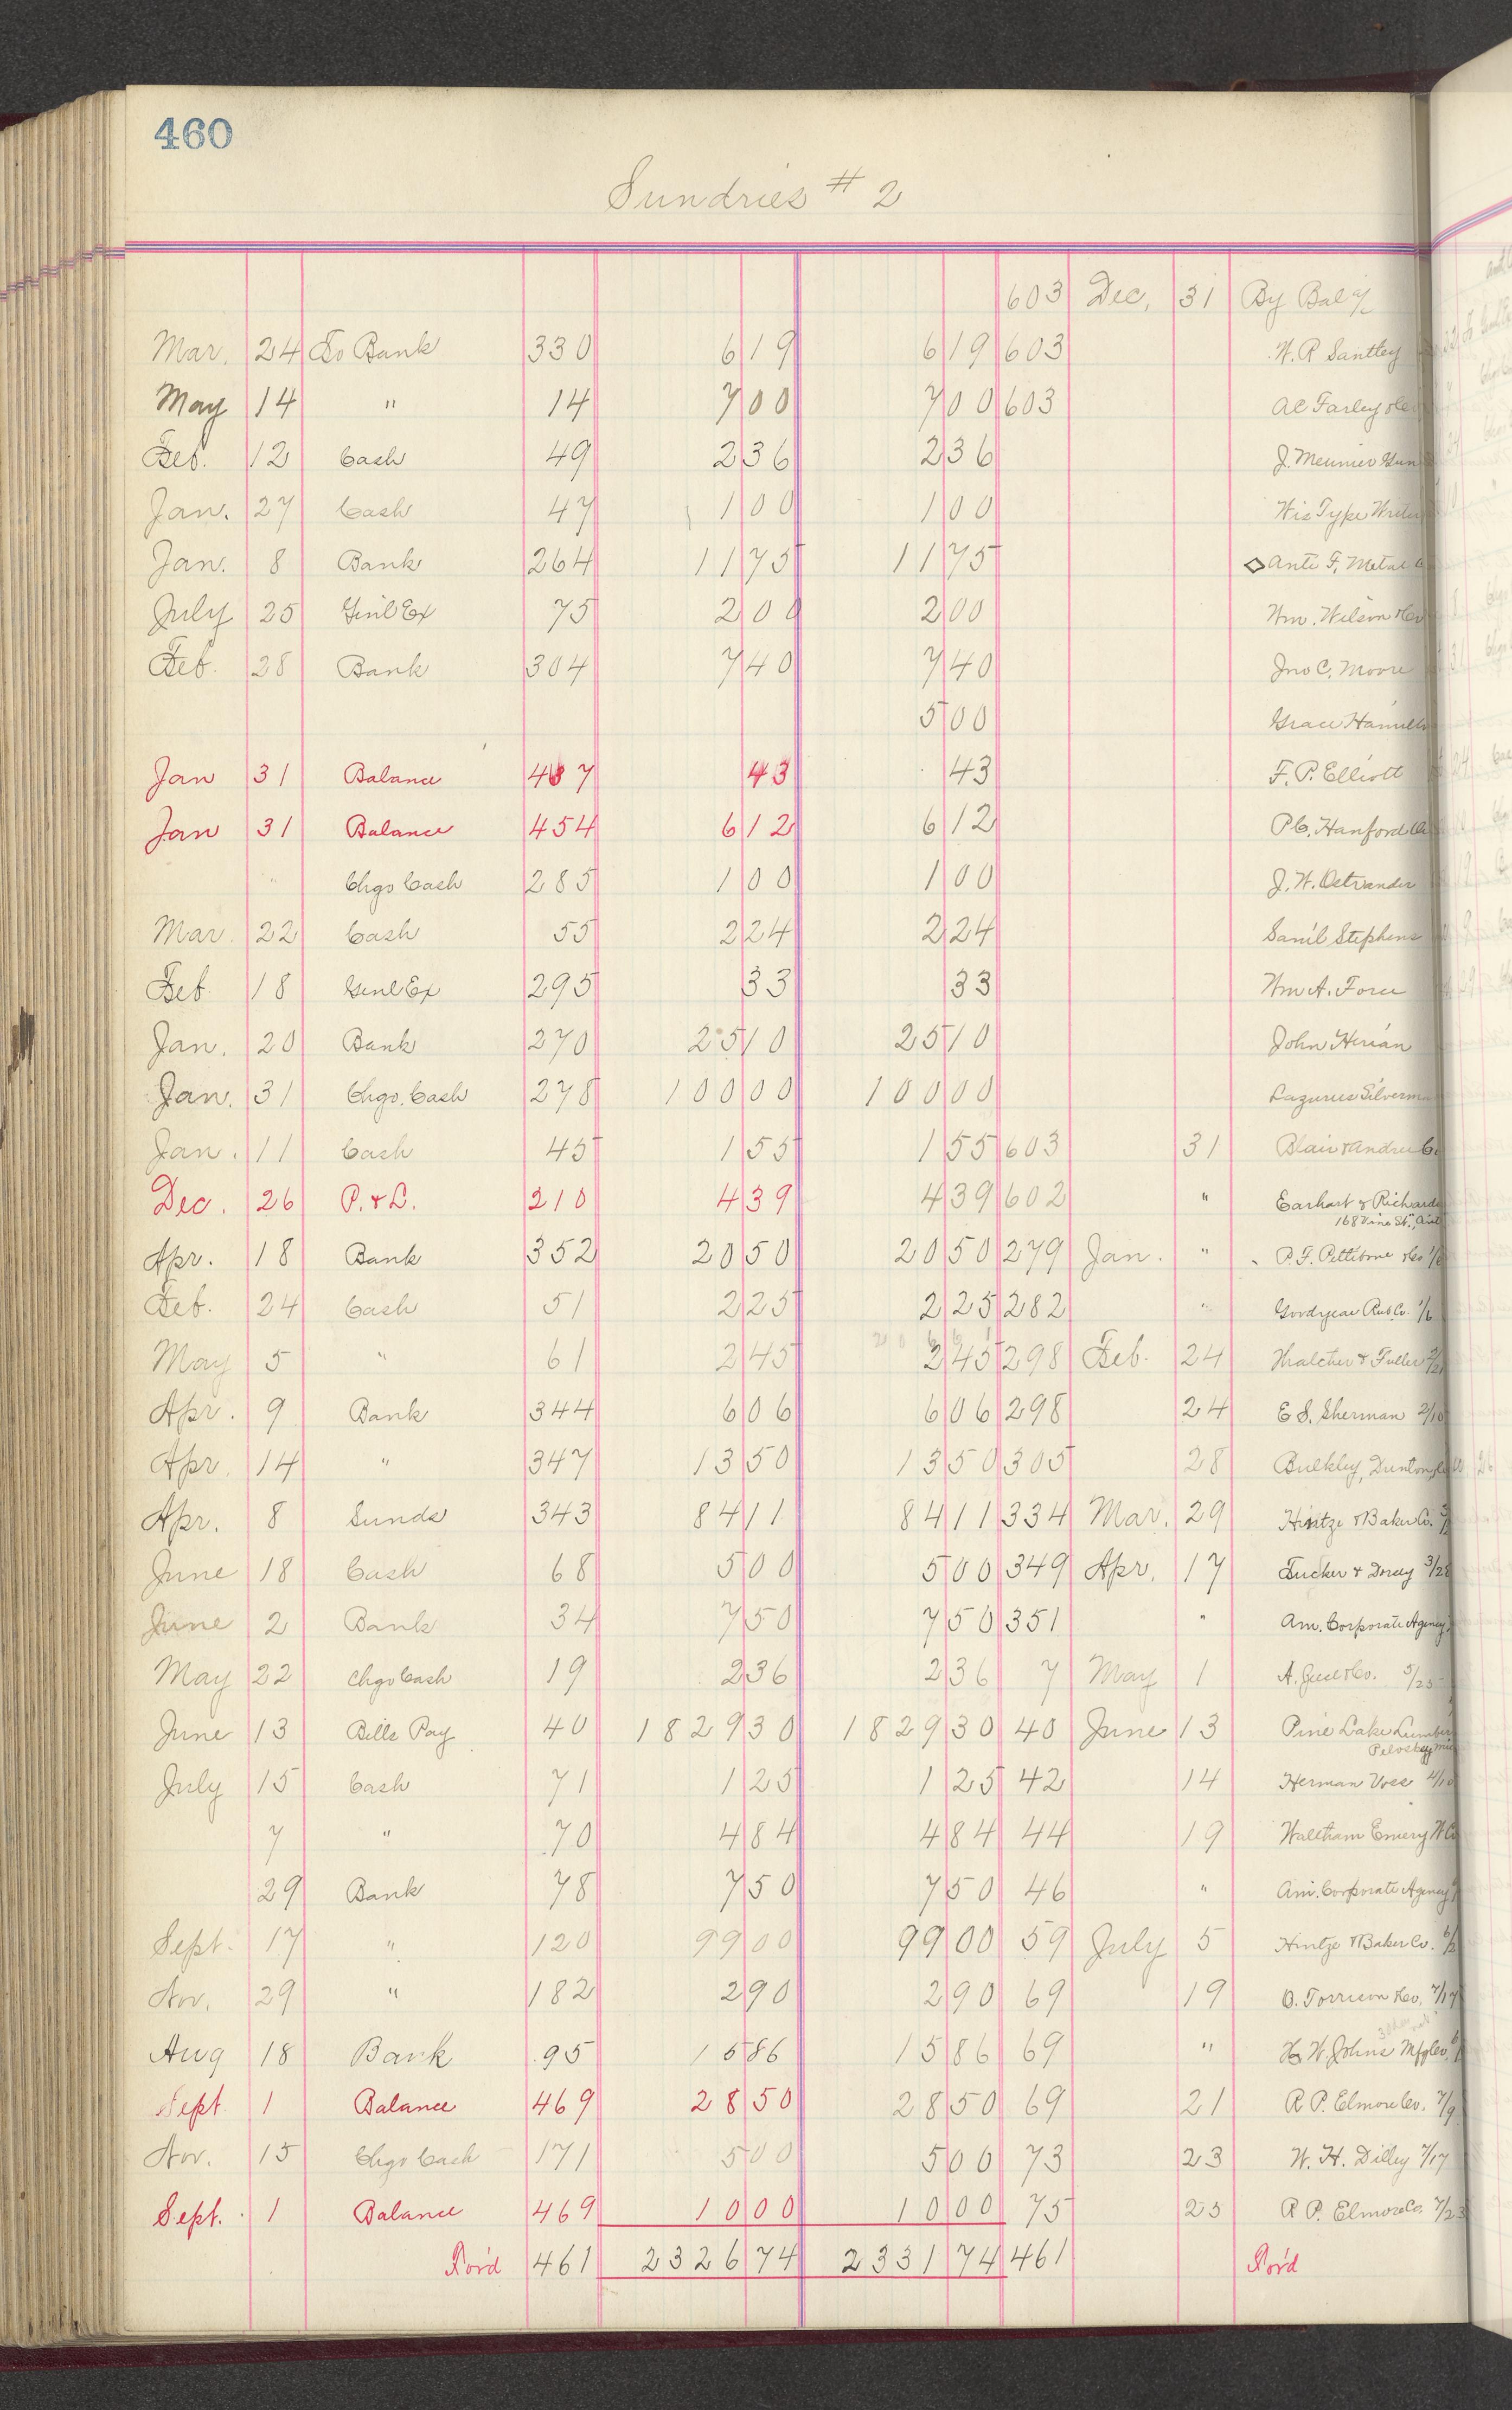 460
Sundries # 2
603 Dec. 31 By Bal a/
Mar. 24 To Bank 330 6 19 6 19 603 W. R Santley
May 14 " 14 7 00 7 00 603 A C Farley &Co
Feb. 12 Cash 49 2 36 2 36 J. Meunier Gun
Jan. 27 Cash 47 1 00 1 00 Wis Type Writer
Jan. 8 Bank 264 11 75 11 75 Anti F. Metal
July 25 Genl Ex 75 2 00 2 00 Wm. Wilson &Co
Feb. 28 Bank 304 7 40 7 40 Jno C. Moore
5 00 Grace
Jan 31 Balance 437 43 43 F. P. Elliott
Jan 31 Balance 454 6 12 6 12 P C. Hanford
" Chgo Cash 285 1 00 1 00 J. W. Ostrander
Mar. 22 Cash 55 2 24 2 24 Saml Stephens
Feb 18 Genl Ex 295 33 33 Wm A. Force
Jan. 20 Bank 270 25 10 25 10 John
Jan. 31 Chgo. Cash 278 100 00 100 00 Lazurus Silverm
Jan. 11 Cash 45 1 55 1 55 603 31 Blair & Andree
Dec. 26 P. & L. 210 4 39 4 39 602 " Earhart & Richards
168 Vine St.,
Apr. 18 Bank 352 20 50 20 50 279 Jan. " P. F. Pettibone &Co
Feb. 24 Cash 51 2 25 2 25 282 " Goodyear Rub Co.
May 5 " 61 2 45 2 45 298 Feb. 24 Thatcher & Fuller
Apr. 9 Bank 344 6 06 6 06 298 24 E S. Sherman 2/10
Apr. 14 " 347 13 50 13 50 305 28 Bulkley, Dunton
Apr. 8 Sunds 343 84 11 84 11 334 Mar. 29 Hintze & Baker Co.
June 18 Cash 68 5 00 5 00 349 Apr. 17 Tucker & Dorsey 3/28
June 2 Bank 34 7 50 7 50 351 " Am. Corporate Agency
May 22 Chgo Cash 19 2 36 2 36 7 May 1 A. &Co. 5/25
June 13 Bills Pay 40 1829 30 1829 30 40 June 13 Pine Lake Lumber
July 15 Cash 71 1 25 1 25 42 14 Herman Voss 4/10
7 " 70 4 84 4 84 44 19 Waltham Emery W Co
29 Bank 78 7 50 7 50 46 " Am. Corporate Agency
Sept. 17 " 120 99 00 99 00 59 July 5 Hintze & Baker Co.
Nov. 29 " 182 2 90 2 90 69 19 O. Torrison &Co. 7/17
Aug 18 Bank 95 15 86 15 86 69 " H W. Johns Mfg Co.
Sept 1 Balance 469 28 50 28 50 69 21 R P. Elmore Co. 7/9
Nov. 15 Chgo Cash 171 5 00 5 00 73 23 W. H. Dilley 7/17
Sept. 1 Balance 469 10 00 10 00 75 25 R P. Elmore Co. 7/23
For'd 461 2326 74 2331 74 461 For'd